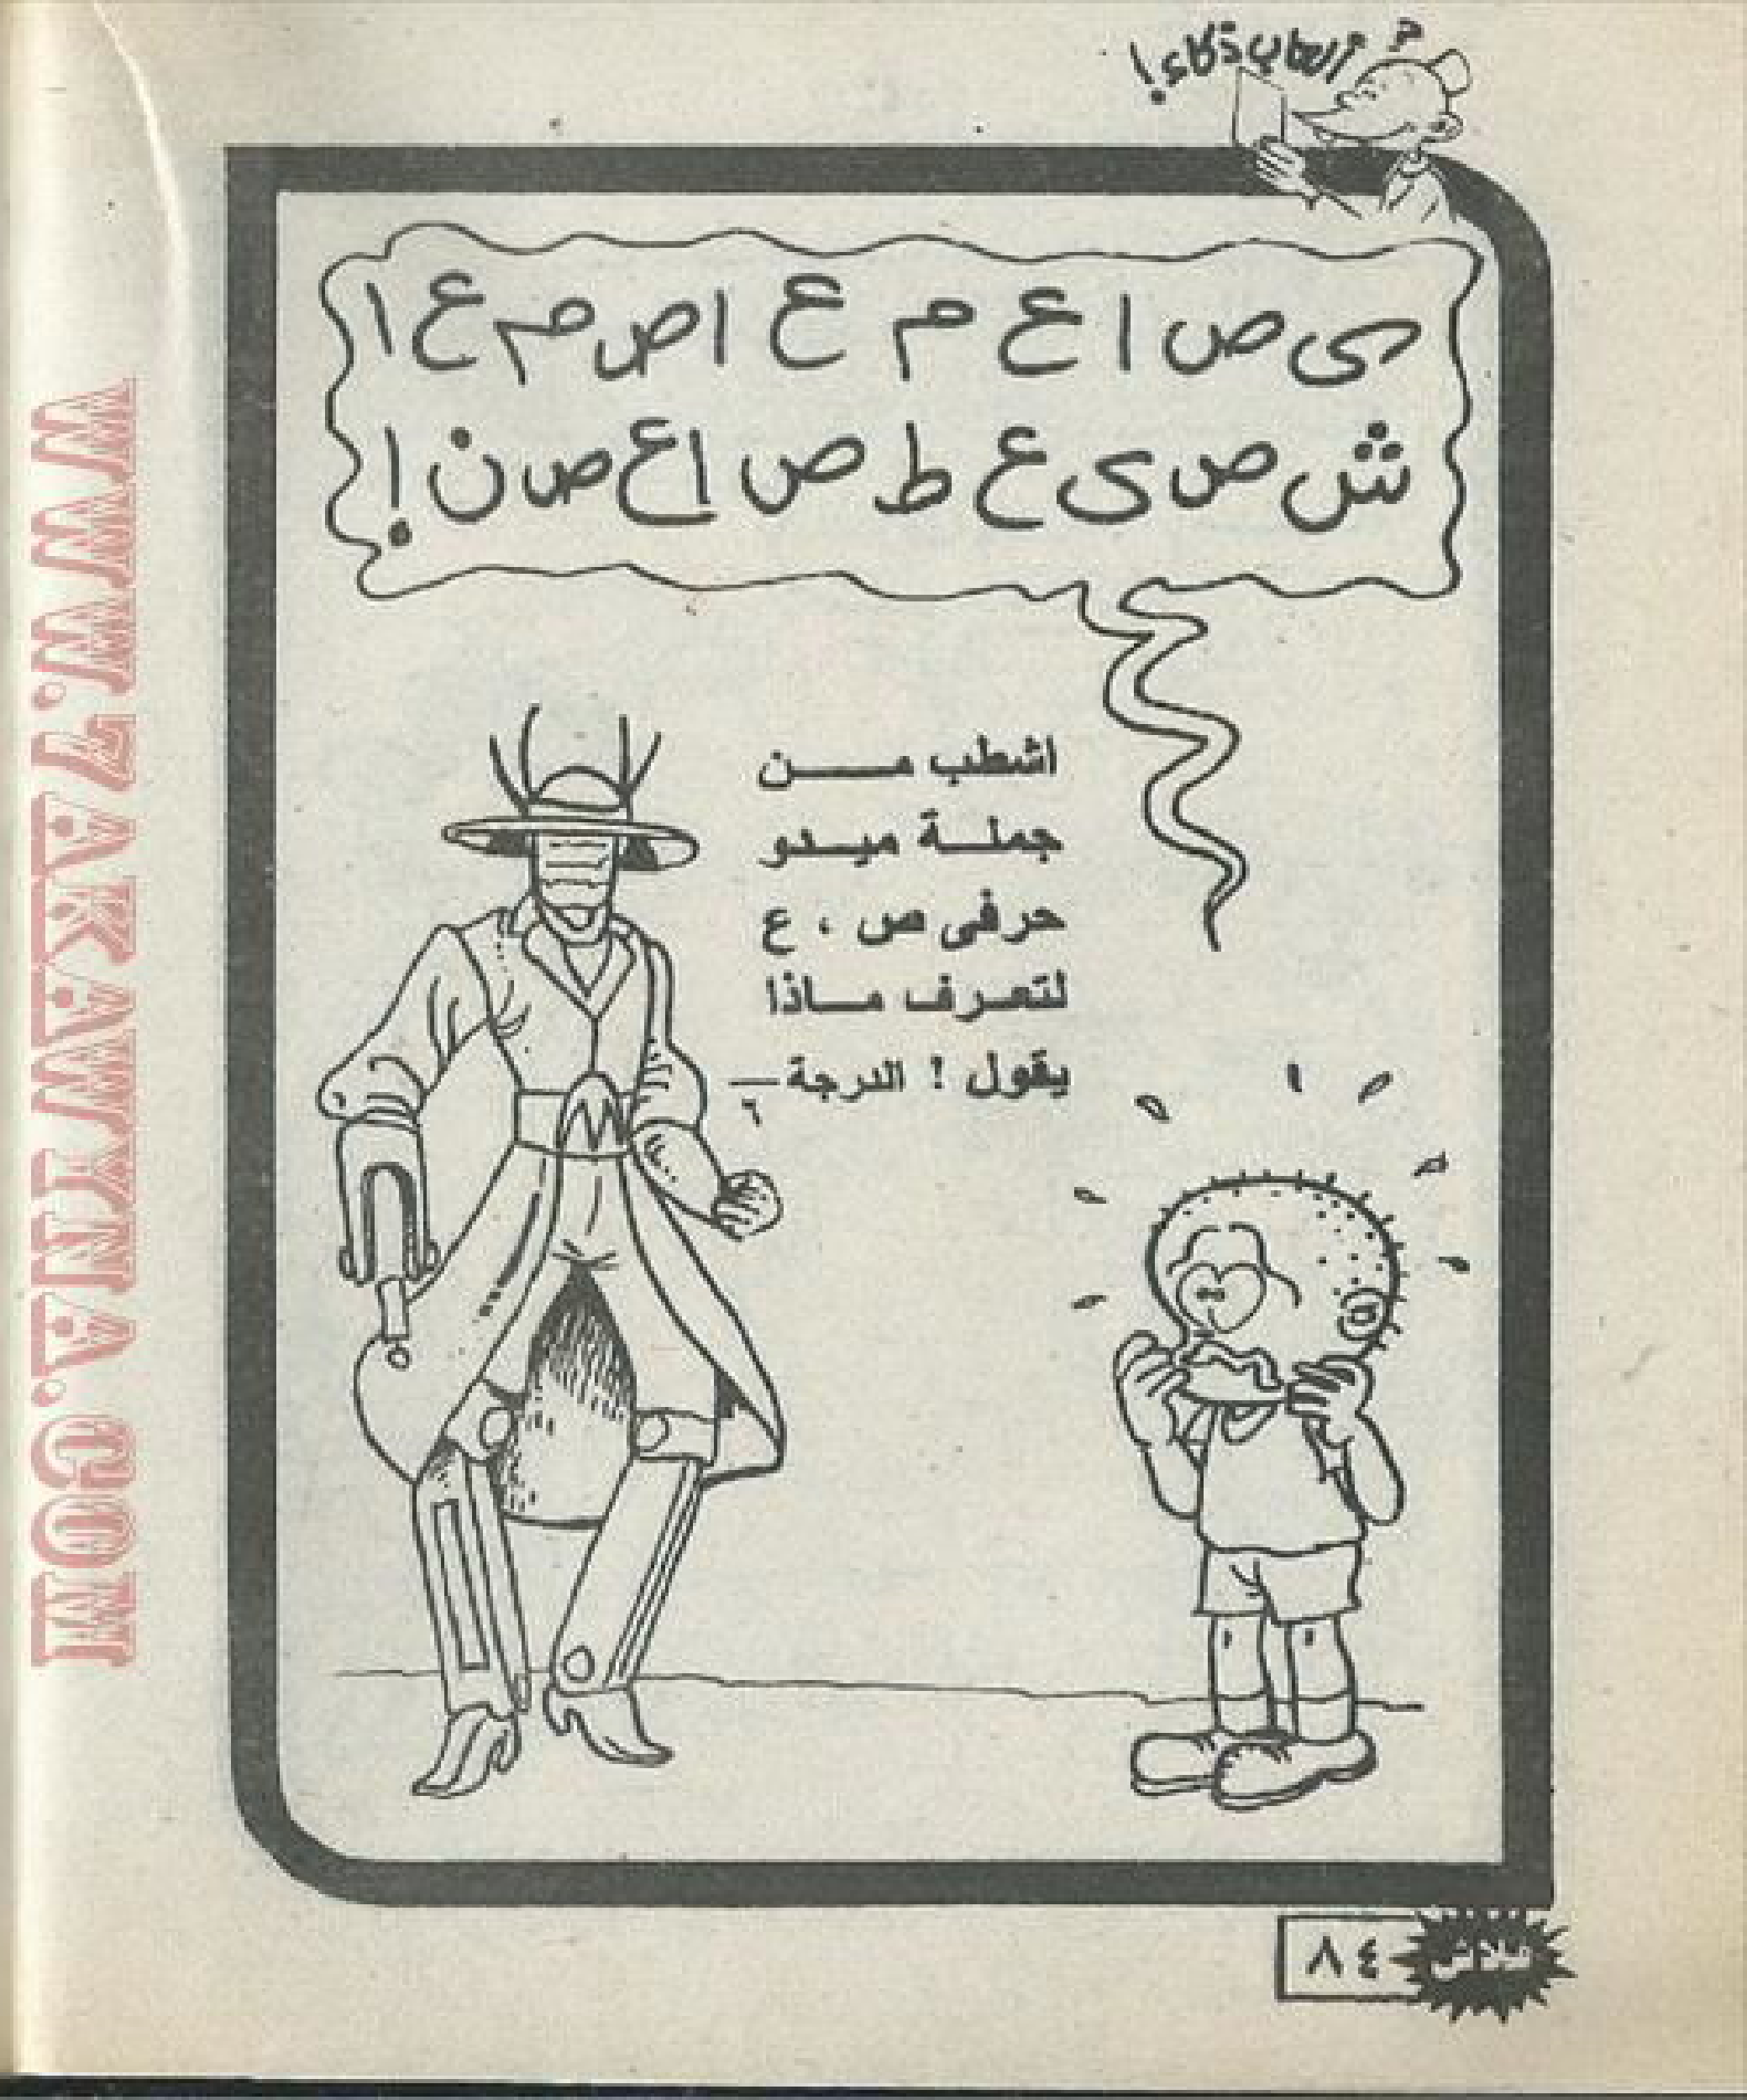 ألعاب ذكاء!
ى ص ا ع م ع ا ص م ع ا
ش ص ى ع ط ص ا ع ص ن !
اشطب من
جملة ميدو
حرفى ص ، ع
لتعرف ماذا
يقول ! الدرجة —
٦
فلاش ٨٤
WWW.7AKAWINA.COM